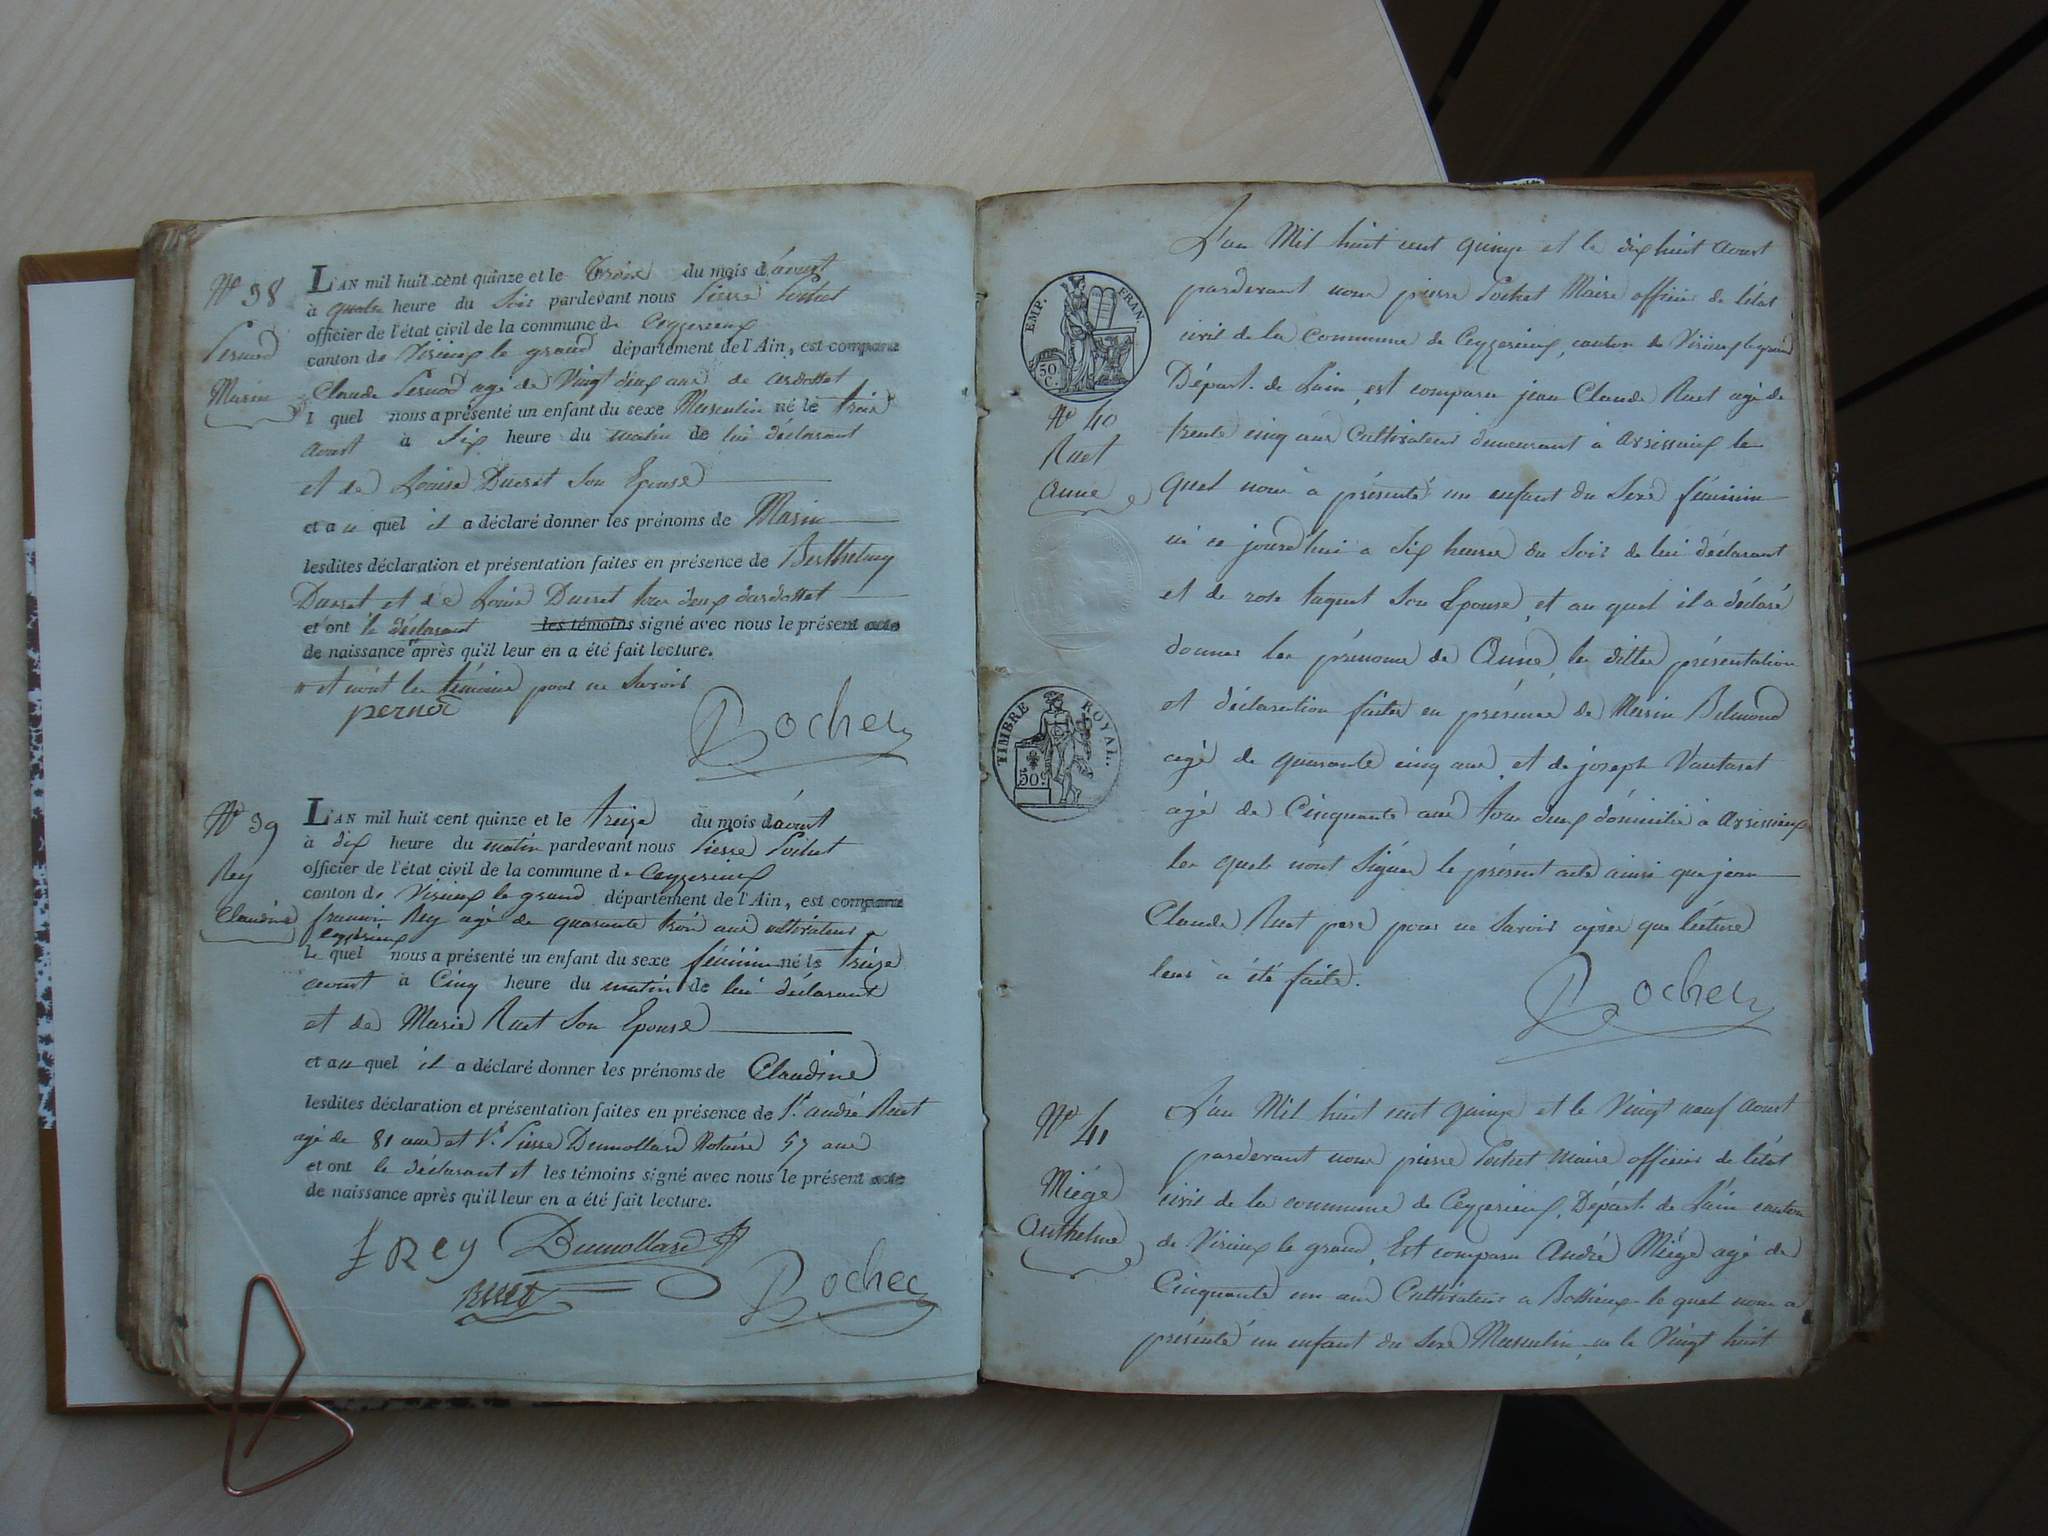 N° 38
Pernod
Marin
L'AN mil huit cent quinze et le trois du mois d'aoust
à quatre heure du soir pardevant nous Pierre Pochet
officier de l'état civil de la commune de Ceyzerieux
canton de Virieux le grand département de l'Ain, est comparu
Claude Pernod agé de Vingt deux ans de ardosset
l quel nous a présenté un enfant du sexe Masculin né le trois
aoust à Six heure du matin de lui déclarant
et de Louise Ducret Son Epouse
et au quel il a déclaré donner les prénoms de Marin
lesdites déclaration et présentation faites en présence de Berthelmy
Ducret et de Louis Ducret tous deux dardosset
et ont le déclarant les témoins signé avec nous le présent acte
de naissance après qu'il leur en a été fait lecture.
et n'ont les témoins pour ne savoir
pernod
Pochet
N° 39
Rey
Claudine
L'AN mil huit cent quinze et le treize du mois d'aoust
à dix heure du matin pardevant nous Pierre Pochet
officier de l'état civil de la commune de Ceyzerieux
canton de Virieux le grand département de l'Ain, est comparu
francois Rey agé de quarante trois ans cultivateur a
ceyzerieux
le quel nous a présenté un enfant du sexe féminin né le treize
aoust à Cinq heure du matin de lui déclarant
et de Marie Ruet Son Epouse
et au quel il a déclaré donner les prénoms de Claudine
lesdites déclaration et présentation faites en présence de Sr. andré Ruet
agé de 81 ans et Sr. Pierre Dumollard Notaire 57 ans
et ont le déclarant et les témoins signé avec nous le présent acte
de naissance après qu'il leur en a été fait lecture.
f Rey Dumollard
Ruet
Pochet
EMP. FRAN.
50 C.
TIMBRE ROYAL.
50 C
N° 40
Ruet
Anne
L'an Mil huit cent quinze et le dix huit aoust
pardevant nous pierre Pochet Maire officier de l'état
civil de la Commune de Ceyzerieux, canton de Virieux le grand
Départ. de Lain, est comparu jean Claude Ruet agé de
trente cinq ans Cultivateur demeurant à avissieux le
quel nous a présenté un enfant du Sexe féminin
né ce jourdhui a Six heures du Soir de lui déclarant
et de rose taquet Son Epouse, et au quel il a déclaré
donner les prénoms de Anne, les dittes présentation
et déclaration faites en présence de Marin Belmond
agé de quarante cinq ans, et de joseph Vautaret
agé de Cinquante ans tous deux domicilié à avissieux
les quels n'ont Signés le présent acte ainsi que jean
Claude Ruet pere pour ne Savoir après que lecture
leur a été faite.
Pochet
N° 41
Miège
Anthelme
L'an Mil huit cent quinze et le Vingt neuf aoust
pardevant nous pierre Pochet maire officier de létat
civil de la commune de Ceyzerieux, Départ. de Lain canton
de Virieux le grand, Est comparu André Miège agé de
Cinquante un ans Cultivateur a Bossieux le quel nous a
présenté un enfant du Sexe Masculin, né le Vingt huit